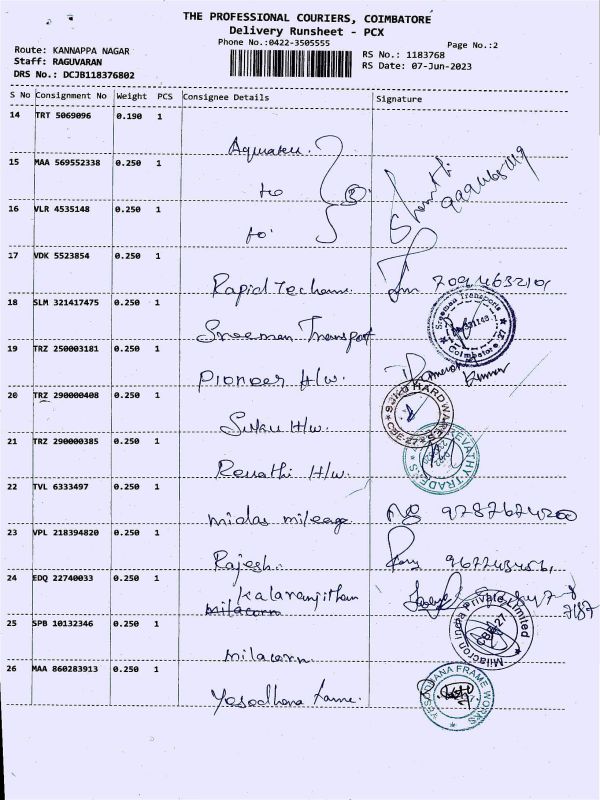 THE PROFESSIONAL COURIERS, COIMBATORE
Delivery Runsheet - PCX
Phone No.:0422-3505555
Page No.:2
Route: KANNAPPA NAGAR
Staff: RAGUVARAN
DRS No.: DCJB118376802
RS No.: 1183768
RS Date: 07-Jun-2023
S No Consignment No Weight PCS Consignee Details Signature
14 TRT 5069096 0.190 1
15 MAA 569552338 0.250 1
to
16 VLR 4535148 0.250 1
to
17 VDK 5523854 0.250 1
Rapid
18 SLM 321417475 0.250 1
Sreeman Transport
Sreeman Transports
Coimbatore 27
19 TRZ 250003181 0.250 1
Pioneer H/w.
20 TRZ 290000408 0.250 1
Suku H/w.
SUKU HARDWARES
CBE-27
21 TRZ 290000385 0.250 1
Revathi H/w.
REVATHY TRADERS
22 TVL 6333497 0.250 1
midas mileage
23 VPL 218394820 0.250 1
Rajesh
24 EDQ 22740033 0.250 1
Kalaranjitham
milacorn
25 SPB 10132346 0.250 1
milacorn
Milacron India Private Limited
CBE-27
26 MAA 860283913 0.250 1
Yesodhana
YESODHANA FRAME WORKS